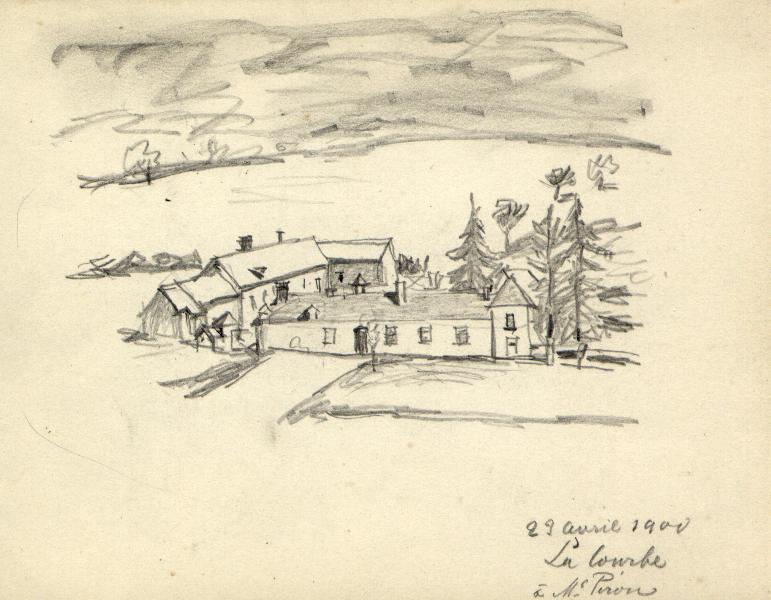 29 avril 1900
La Courbe
à Mr Piron